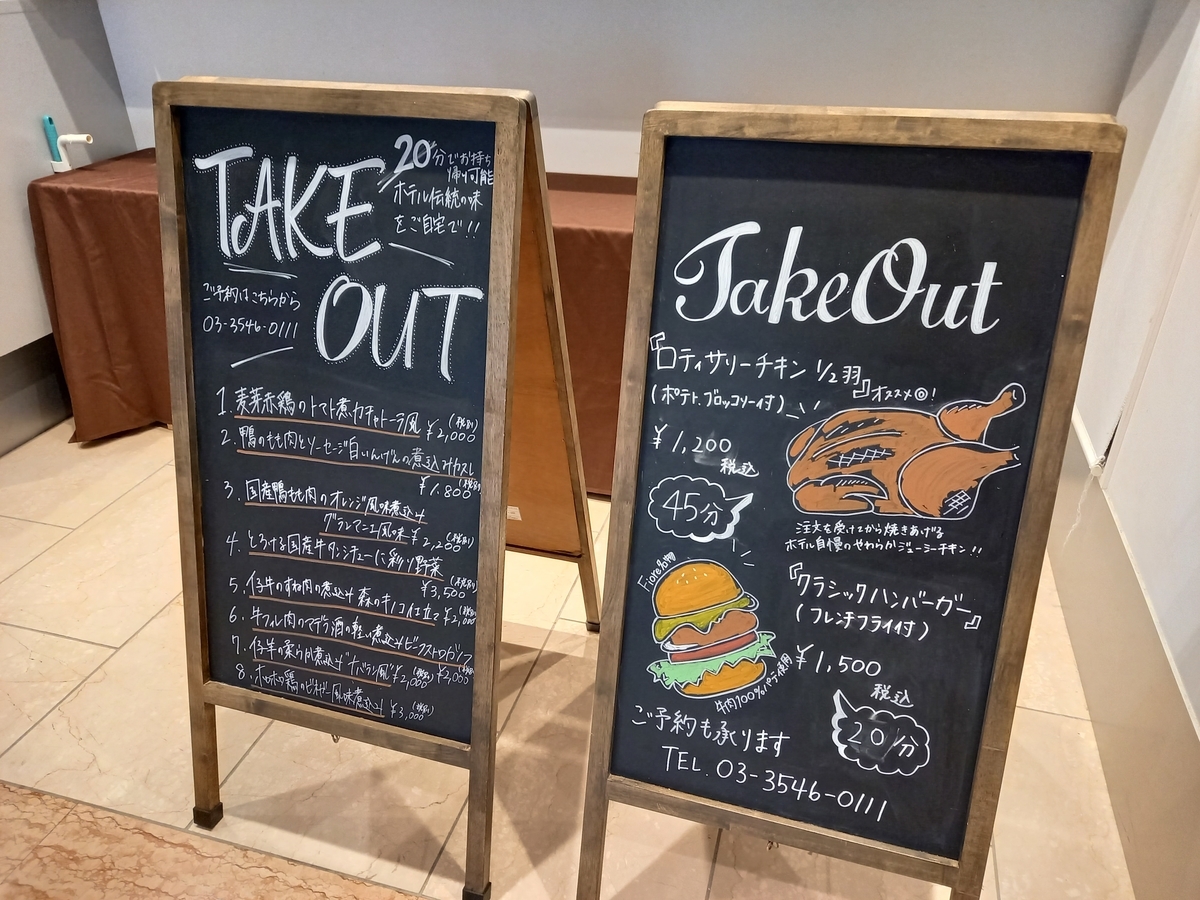 TAKE
OUT
20分でお持ち
帰り可能
ホテル伝統の味
をご自宅で!!
ご予約はこちらから
03-3546-0111
1. 麦芽赤鶏のトマト煮カチャトーラ風 ¥2,000 (税別)
2. 鴨のもも肉とソーセージ白いんげんの煮込みカスレ
¥1,800 (税別)
3. 国産鴨もも肉のオレンジ風味煮込み
グランマニエ風味 ¥2,200 (税別)
4. とろける国産牛タンシチューに彩り野菜
¥3,500 (税別)
5. 仔牛のすね肉の煮込み 森のキノコ仕立て ¥2,000 (税別)
6. 牛フィレ肉のマデラ酒の軽い煮込みビーフストロガノフ
¥2,000 (税別)
7. 仔牛の柔らか煮込み ナバラン風 ¥2,000 (税別)
8. ホロホロ鶏のビネガー風味煮込み ¥3,000 (税別)
TakeOut
『ロティサリーチキン 1/2羽』オススメ◎!
(ポテト、ブロッコリー付)
¥1,200
税込
45分
注文を受けてから焼きあげる
ホテル自慢のやわらかジューシーチキン!!
Fiore名物
『クラシックハンバーガー』
(フレンチフライ付)
¥1,500
税込
牛肉100%パテ使用
20分
ご予約も承ります
TEL. 03-3546-0111